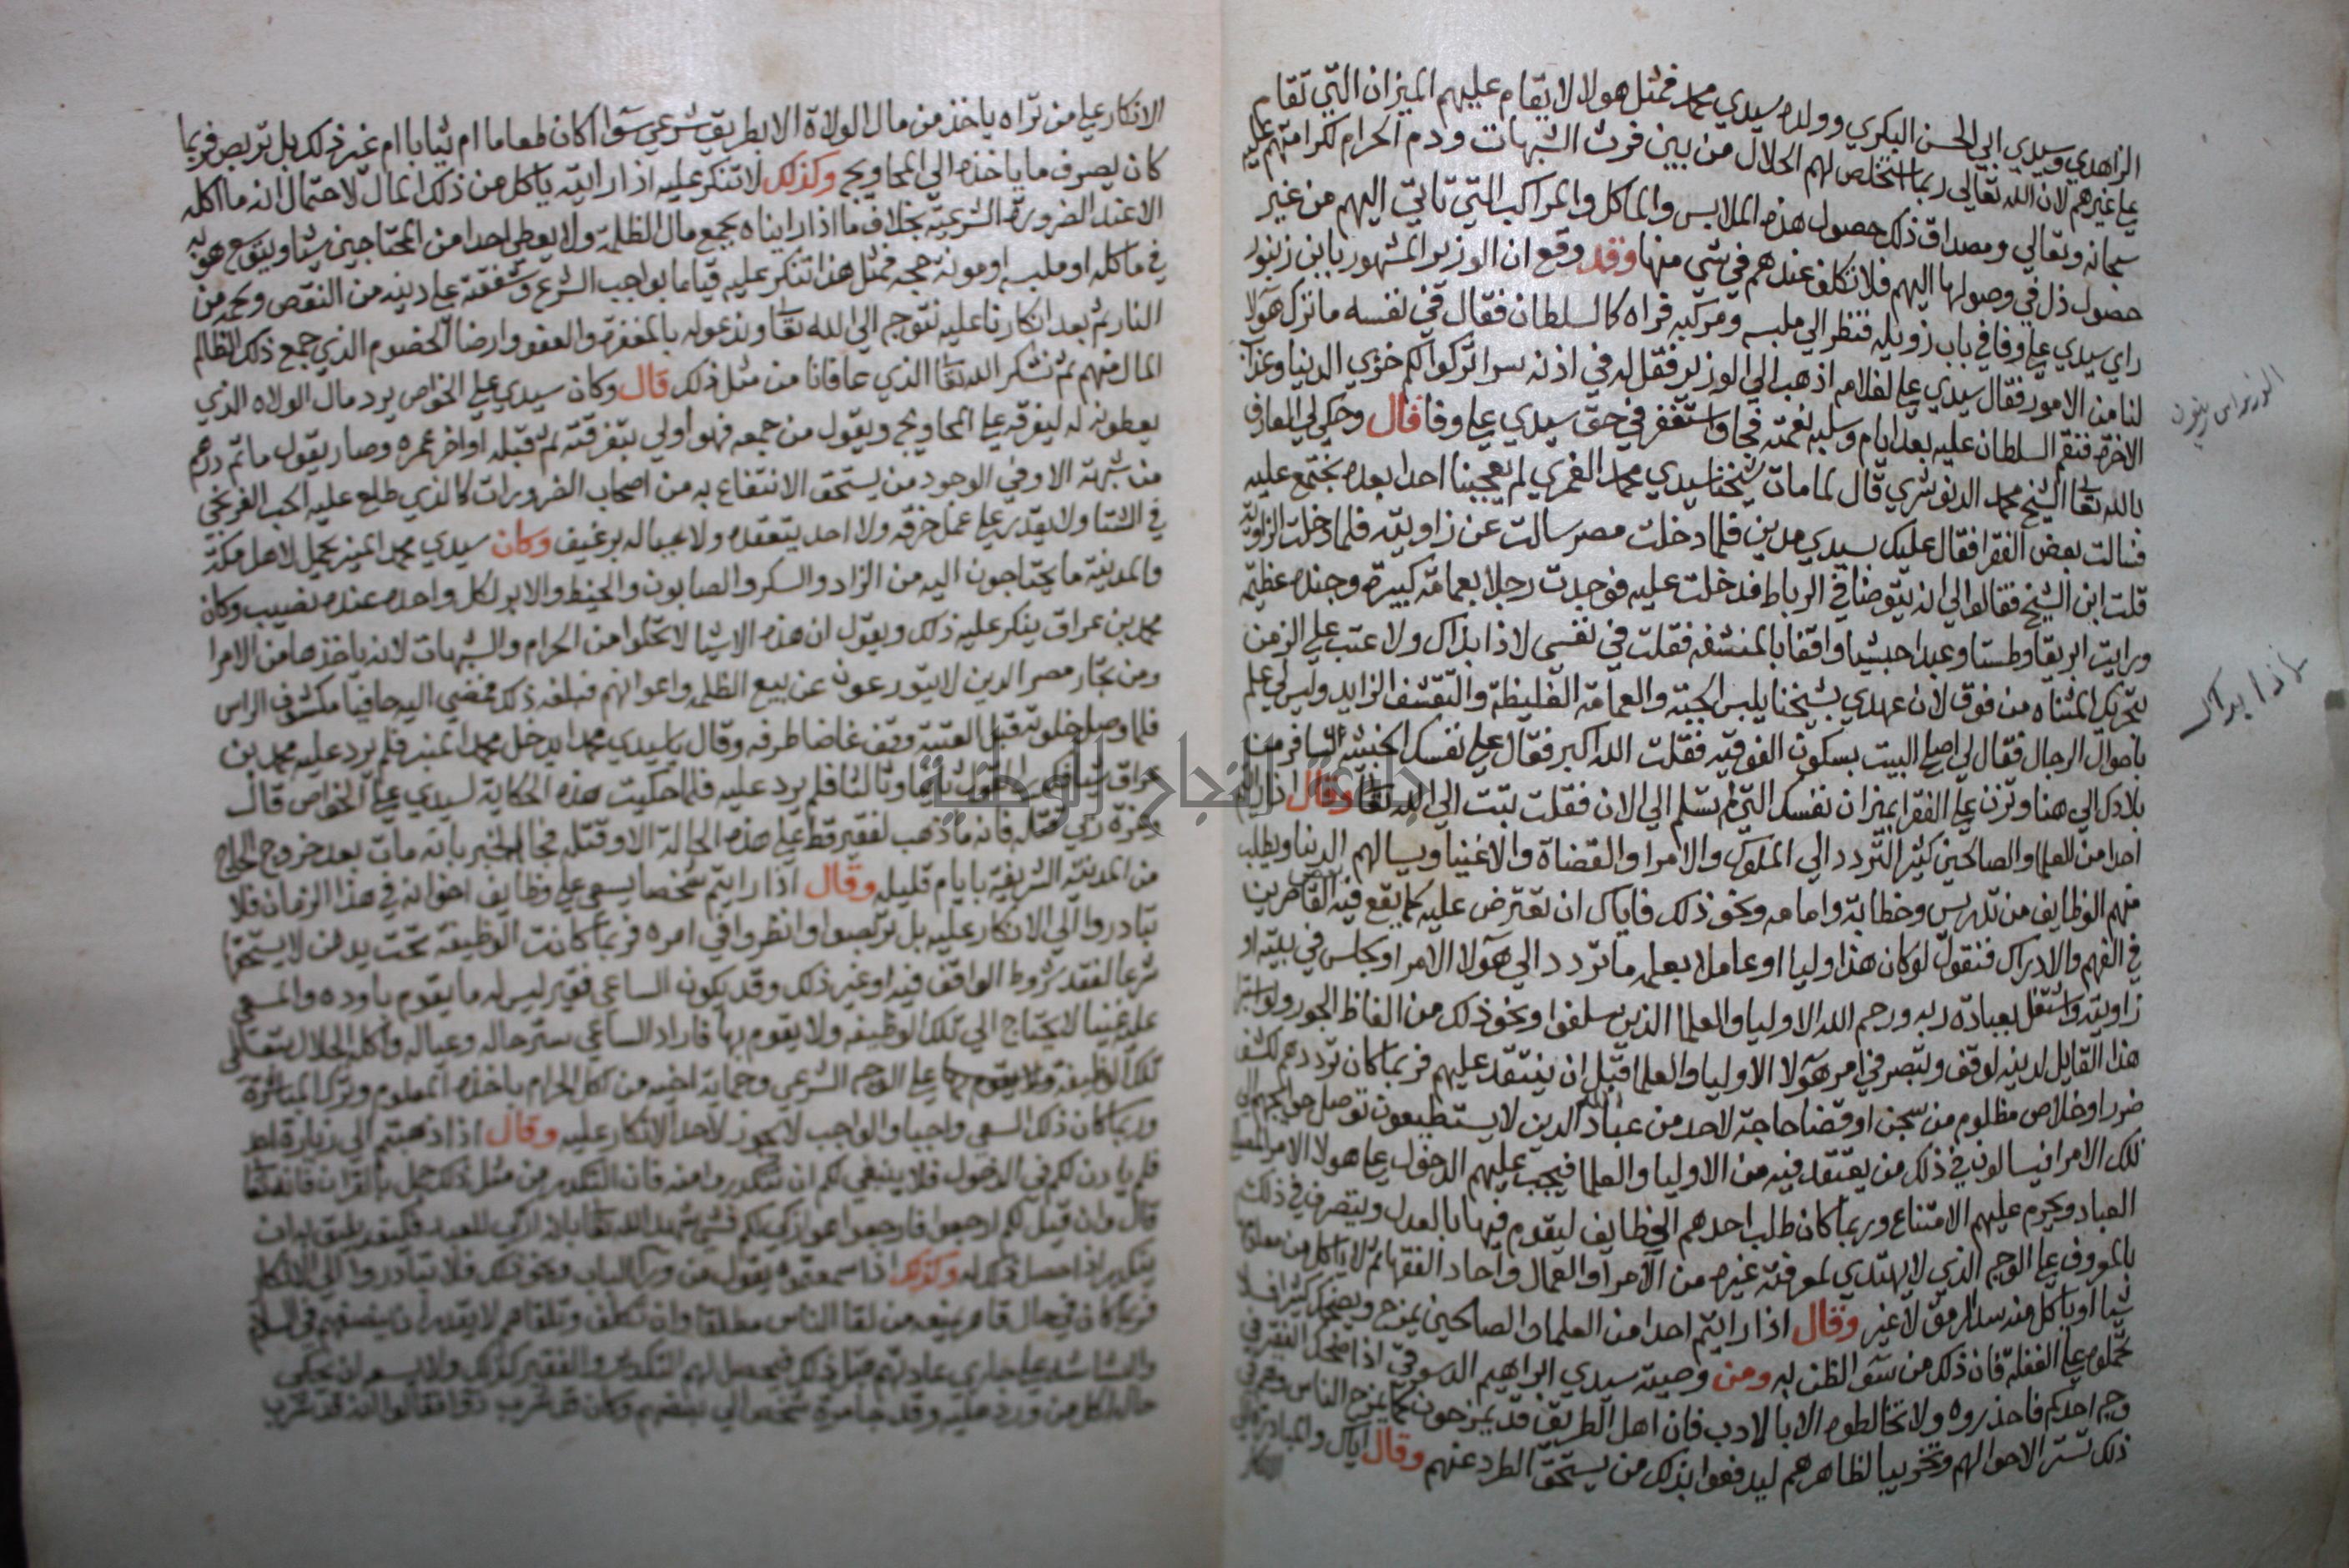 الزاهدي وسيدي ابي الحسن البكري وولده سيدي محمد فمثل هولا لا يقام عليهم الميزان التي تقام
علي غيرهم لان الله تعالي ربما استخلص لهم الحلال من بين فرث الشبهات ودم الحرام لكرامتهم عليه
سبحانه وتعالي ومصداق ذلك حصول هذه الملابس والماكل والمراكب التي تاتي اليهم من غير
حصول ذل في وصولها اليهم فلا تكلف عندهم في شي منها وقد وقع ان الوزير المشهور بابن زنبور
راي سيدي علي وفا في باب زويله فنظر الي ملبسه ومركبه فراه كالسلطان فقال في نفسه ما ترك هولا
لنا من الامور فقال سيدي علي لغلامه اذهب الي الوزير فقل له في اذنه سرا تركوا لكم خزي الدنيا وعذاب
الاخرة فنقم السلطان عليه بعد ايام وسلبه نعمته فجا واستغفر في حق سيدي علي وفا قال وحكي لي العارف
بالله تعالي الشيخ محمد الدنوشري قال لما مات شيخنا سيدي محمد الغمري لم يعجبنا احدا بعده نجتمع عليه
فسالت بعض الفقرا فقال عليك بسيدي مدين فلما دخلت مصر سالت عن زاويته فلما دخلت الزاوية
قلت اين الشيخ فقالوا لي انه يتوضا في الرباط فدخلت عليه فوجدت رجلا بعمامة كبيرة وجنده عظيم
ورايت ابريقا وطستا وعبدا حبشيا واقفا بالمنشفه فقلت في نفسي لا ذا بذاك ولا عتب علي الزمن
بتحريك المثناه من فوق لان عهدي بشيخنا يلبس الجبة والعمامة الغليظة والتقشف الزايد وليس لي علم
باحوال الرجال فقال لي اصلح البيت بسكون الفوقيه فقلت الله اكبر فقال علي نفسك الخبيثه اتسافر من
بلادك الي هنا وتزن علي الفقرا بميزان نفسك التي لم تسلم الي الان فقلت تبت الي الله تعالي وقال اذا رايتم
احدا من العلما والصالحين كثير التردد الي الملوك والامرا والقضاة والاغنيا ويسالهم الدنيا ويطلب
منهم الوظايف من تدريس وخطابة وامامه ونحو ذلك فاياك ان تعترض عليه كما يقع فيه بعض القاصرين
في الفهم والادراك فتقول لو كان هذا وليا او عاملا بعلمه ما تردد الي هولا الامرا وجلس في بيته او
زاويته واشتغل بعبادة ربه ورحم الله الاوليا والعلما الذين سلفوا ونحو ذلك من الفاظ الجور ولو استبرا
هذا القايل لدينه لوقف وتبصر في امر هولا الاوليا والعلما قبل ان ينتقد عليهم فربما كان ترددهم لكشف
ضرر او خلاص مظلوم من سجن او قضا حاجة لاحد من عباد الله الذين لا يستطيعون توصل حوايجهم الي
تلك الامرا فيسالون في ذلك من يعتقد فيه من الاوليا والعلما فيجب عليهم الدخول علي هولا الامرا لمصالح
العباد ويحرم عليهم الامتناع وربما كان طلب احدهم الوظايف ليقوم فيها بالعدل ويتصرف في ذلك
بالمعروف علي الوجه الذي لا يهتدي لمعرفته غيره من الامرا والعمال واحاد الفقها ثم لا ياكل من معلوم
شيا او ياكل منه سد الرمق لا غير وقال اذا رايتم احدا من العلما والصالحين يمزح ويضحك كثيرا فلا
تحملوه علي الغفلة فان ذلك من سو الظن به ومن وصية سيدي ابراهيم الدسوقي اذا ضحك الفقير في
وجه احدكم فاحذروه ولا تخالطوه الا بالادب فان اهل الطريق قد يمزحون كما يمزح الناس وهم في
ذلك تسترا لاحوالهم وتخريبا لظاهرهم ليدفعوا بذلك من يستحق الطرد عنهم وقال اياك والمبادرة الي
الوزير ابن زنبور
لا ذا بذاك
الانكار علي من تراه ياخذ من مال الولاة الا بطريق شرعي سوا كان طعاما ام ثيابا ام غير ذلك بل تربص فربما
كان يصرف ما ياخذه الي المحاويج وكذلك لا تنكر عليه اذا رايته ياكل من ذلك المال لاحتمال انه ما اكله
الا عند الضرورة الشرعية بخلاف ما اذا رايناه يجمع مال الظلمة ولا يعطي احدا من المحتاجين شيا ويتوسع هو به
في ماكله او ملبسه او مونة حجه فمثل هذا ننكر عليه قياما بواجب الشرع وشفقة علي دينه من النقص ولحمه من
النار ثم بعد انكارنا عليه نتوجه الي الله تعالي وندعوله بالمغفرة والعفو وارضا الخصوم الذي جمع ذلك الظالم
المال منهم ثم نشكر الله تعالي الذي عافانا من مثل ذلك قال وكان سيدي علي الخواص يرد مال الولاه الذي
يعطونه له ليفرقه علي المحاويج ويقول من جمعه فهو اولي بتفرقته ثم قبله اواخر عمره وصار يقول ما ثم درهم
من شبهة الا وفي الوجود من يستحق الانتفاع به من اصحاب الضرورات كالذي طلع عليه الحب الفرنجي
في الشتا ولا يقدر علي عمل حرفه ولا احد يتفقده ولا عياله برغيف وكان سيدي محمد المنير يحمل لاهل مكة
والمدينة ما يحتاجون اليه من الزاد والسكر والصابون والخيط والابر لكل واحد عنده نصيب وكان
محمد بن عراق ينكر عليه ذلك ويقول ان هذه الاشيا لا تخلوا من الحرام والشبهات لانه ياخذها من الامرا
ومن تجار مصر الذين لا يتورعون عن بيع الظلمه واعوانهم فبلغه ذلك فمضي اليه حافيا مكشوف الراس
فلما وصل خلوته قبل العتبة ووقف غاضا طرفه وقال يا سيدي محمد ايدخل محمد المنير فلم يرد عليه محمد بن
عراق شيا فكرر القول ثانيا وثالثا فلم يرد عليه فلما حكيت هذه الحكاية لسيدي علي الخواص قال
وعزة ربي قتله فانه ما ذهب لفقير قط علي هذه الحالة الا وقتله فجا الخبر بانه مات بعد خروج الحاج
من المدينة الشريفة بايام قليله وقال اذا رايتم شخصا يسعي علي وظايف اخوانه في هذا الزمان فلا
تبادروا الي الانكار عليه بل تربصوا وانظروا في امره فربما كانت الوظيفة تحت يد من لا يستحقها
شرعا لفقد شروط الواقف فيه او غير ذلك وقد يكون الساعي فقير ليس له ما يقوم باوده والمسعي
عليه غنيا لا يحتاج الي تلك الوظيفه ولا يقوم بها فاراد الساعي ستر حاله وعياله واكله الحلال
تلك الوظيفة علي الوجه الشرعي وحماية اخيه من اكل الحرام باخذه المعلوم وترك المباشرة
وربما كان ذلك السعي واجبا والواجب لا يجوز لاحد الانكار عليه وقال اذا ذهبتم الي زيارة احد
فلم ياذن لكم في الدخول فلا ينبغي لكم ان تتكدروا منه فان التكدر من مثل ذلك جهل بالقران فانه تعالي
قال وان قيل لكم ارجعوا فارجعوا هو ازكي لكم فشي شهد الله تعالي بانه ازكي للعبد فكيف يليق به ان
يتكدر اذا حصل ذلك له وكذلك اذا سمعتموه يقول من ورا الباب ونحو ذلك فلا تبادروا الي الانكار
فربما كان في حال قاهر يمنعه من لقا الناس مطلقا وان تكلف وتلقاهم لا يقدر ان ينصفهم في السلام
والبشاشه علي جاري عادتهم قبل ذلك فيحصل لهم التكدر والفقير كذلك ولا يسعه ان يحكي
حاله لكل من ورد عليه وقد جا مرة شخص الي بعضهم وكان قد شرب دوا فقالوا انه قد شرب
جامعة النجاح الوطنية